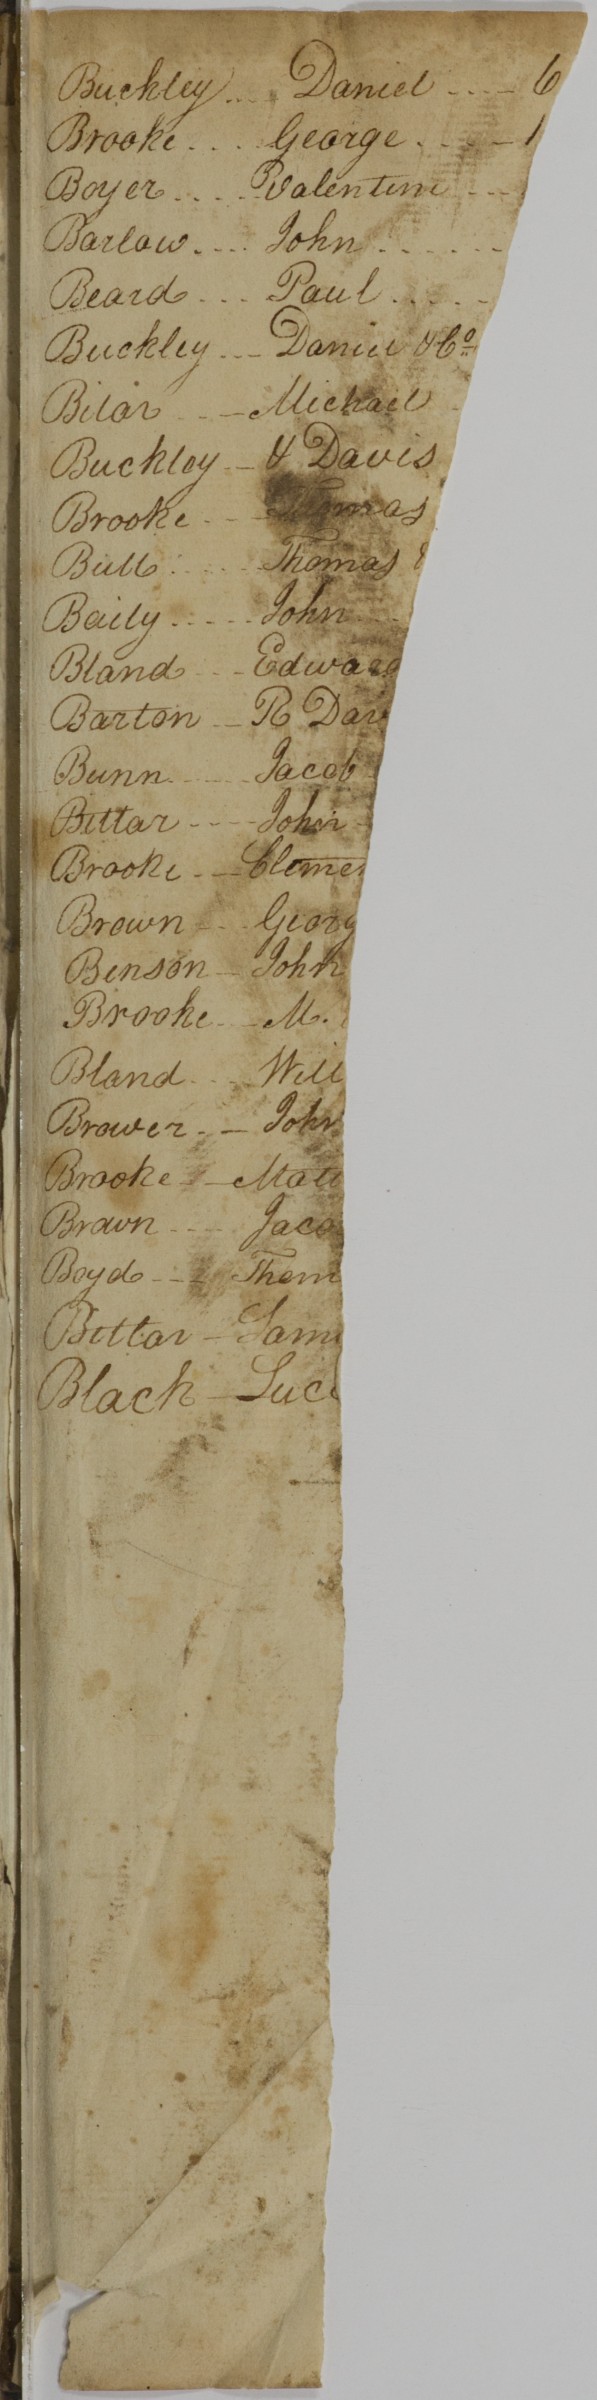 Buckley .... Daniel ..... 6
Brooke .... George ..... 1
Boyer ..... Valentine ...
Barlow .... John ......
Beard .... Paul .....
Buckley ... Daniel & Co
Bitar ... Michael
Buckley - & Davis
Brooke ... Thomas
Bull ..... Thomas
Baily ..... John ...
Bland ... Edward
Barton - R Dav
Bunn ..... Jacob
Bittar .... John -
Brooke ... Clemen
Brown ... Georg
Benson - John
Brooke ... M.
Bland .... Will
Brower .. - John
Brooke - Matt
Brown .... Jaco
Boyd ... Thom
Bittar - Sam
Black - Luc